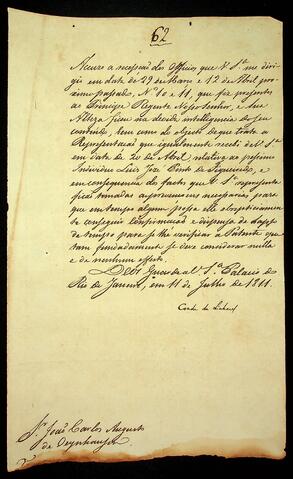 62
Accuso a recepção dos Officios que V. S.ª me diri-
gio em data de 29 de Março e 12 de Abril pro-
ximo passados, N.os 10 e 11, que fiz presentes
ao Principe Regente Nosso Senhor, e Sua
Alteza ficou na devida intelligencia do seu
contheudo, bem como do objecto de que trata a
Representação que igualmente recebi de V. S.ª
em data de 20 de Abril, relativa ao
Individuo Luiz Joze Pinto de Figueiredo, e
em consequencia do facto que V. S.ª representa
ficão tomadas as prevenções necessarias para
que em tempo algum possa elle
conseguir Confirmação e dispensa do lapso
de tempo para se lhe verificar a Patente que
tam fundadamente se deve considerar nulla
e de nenhum effeito.
Deos Guarde a V. S.ª Palacio do
Rio de Janeiro, em 11 de Julho de 1811.
Conde de Linhares
Sr. João Carlos Augusto
de Oeynhausen